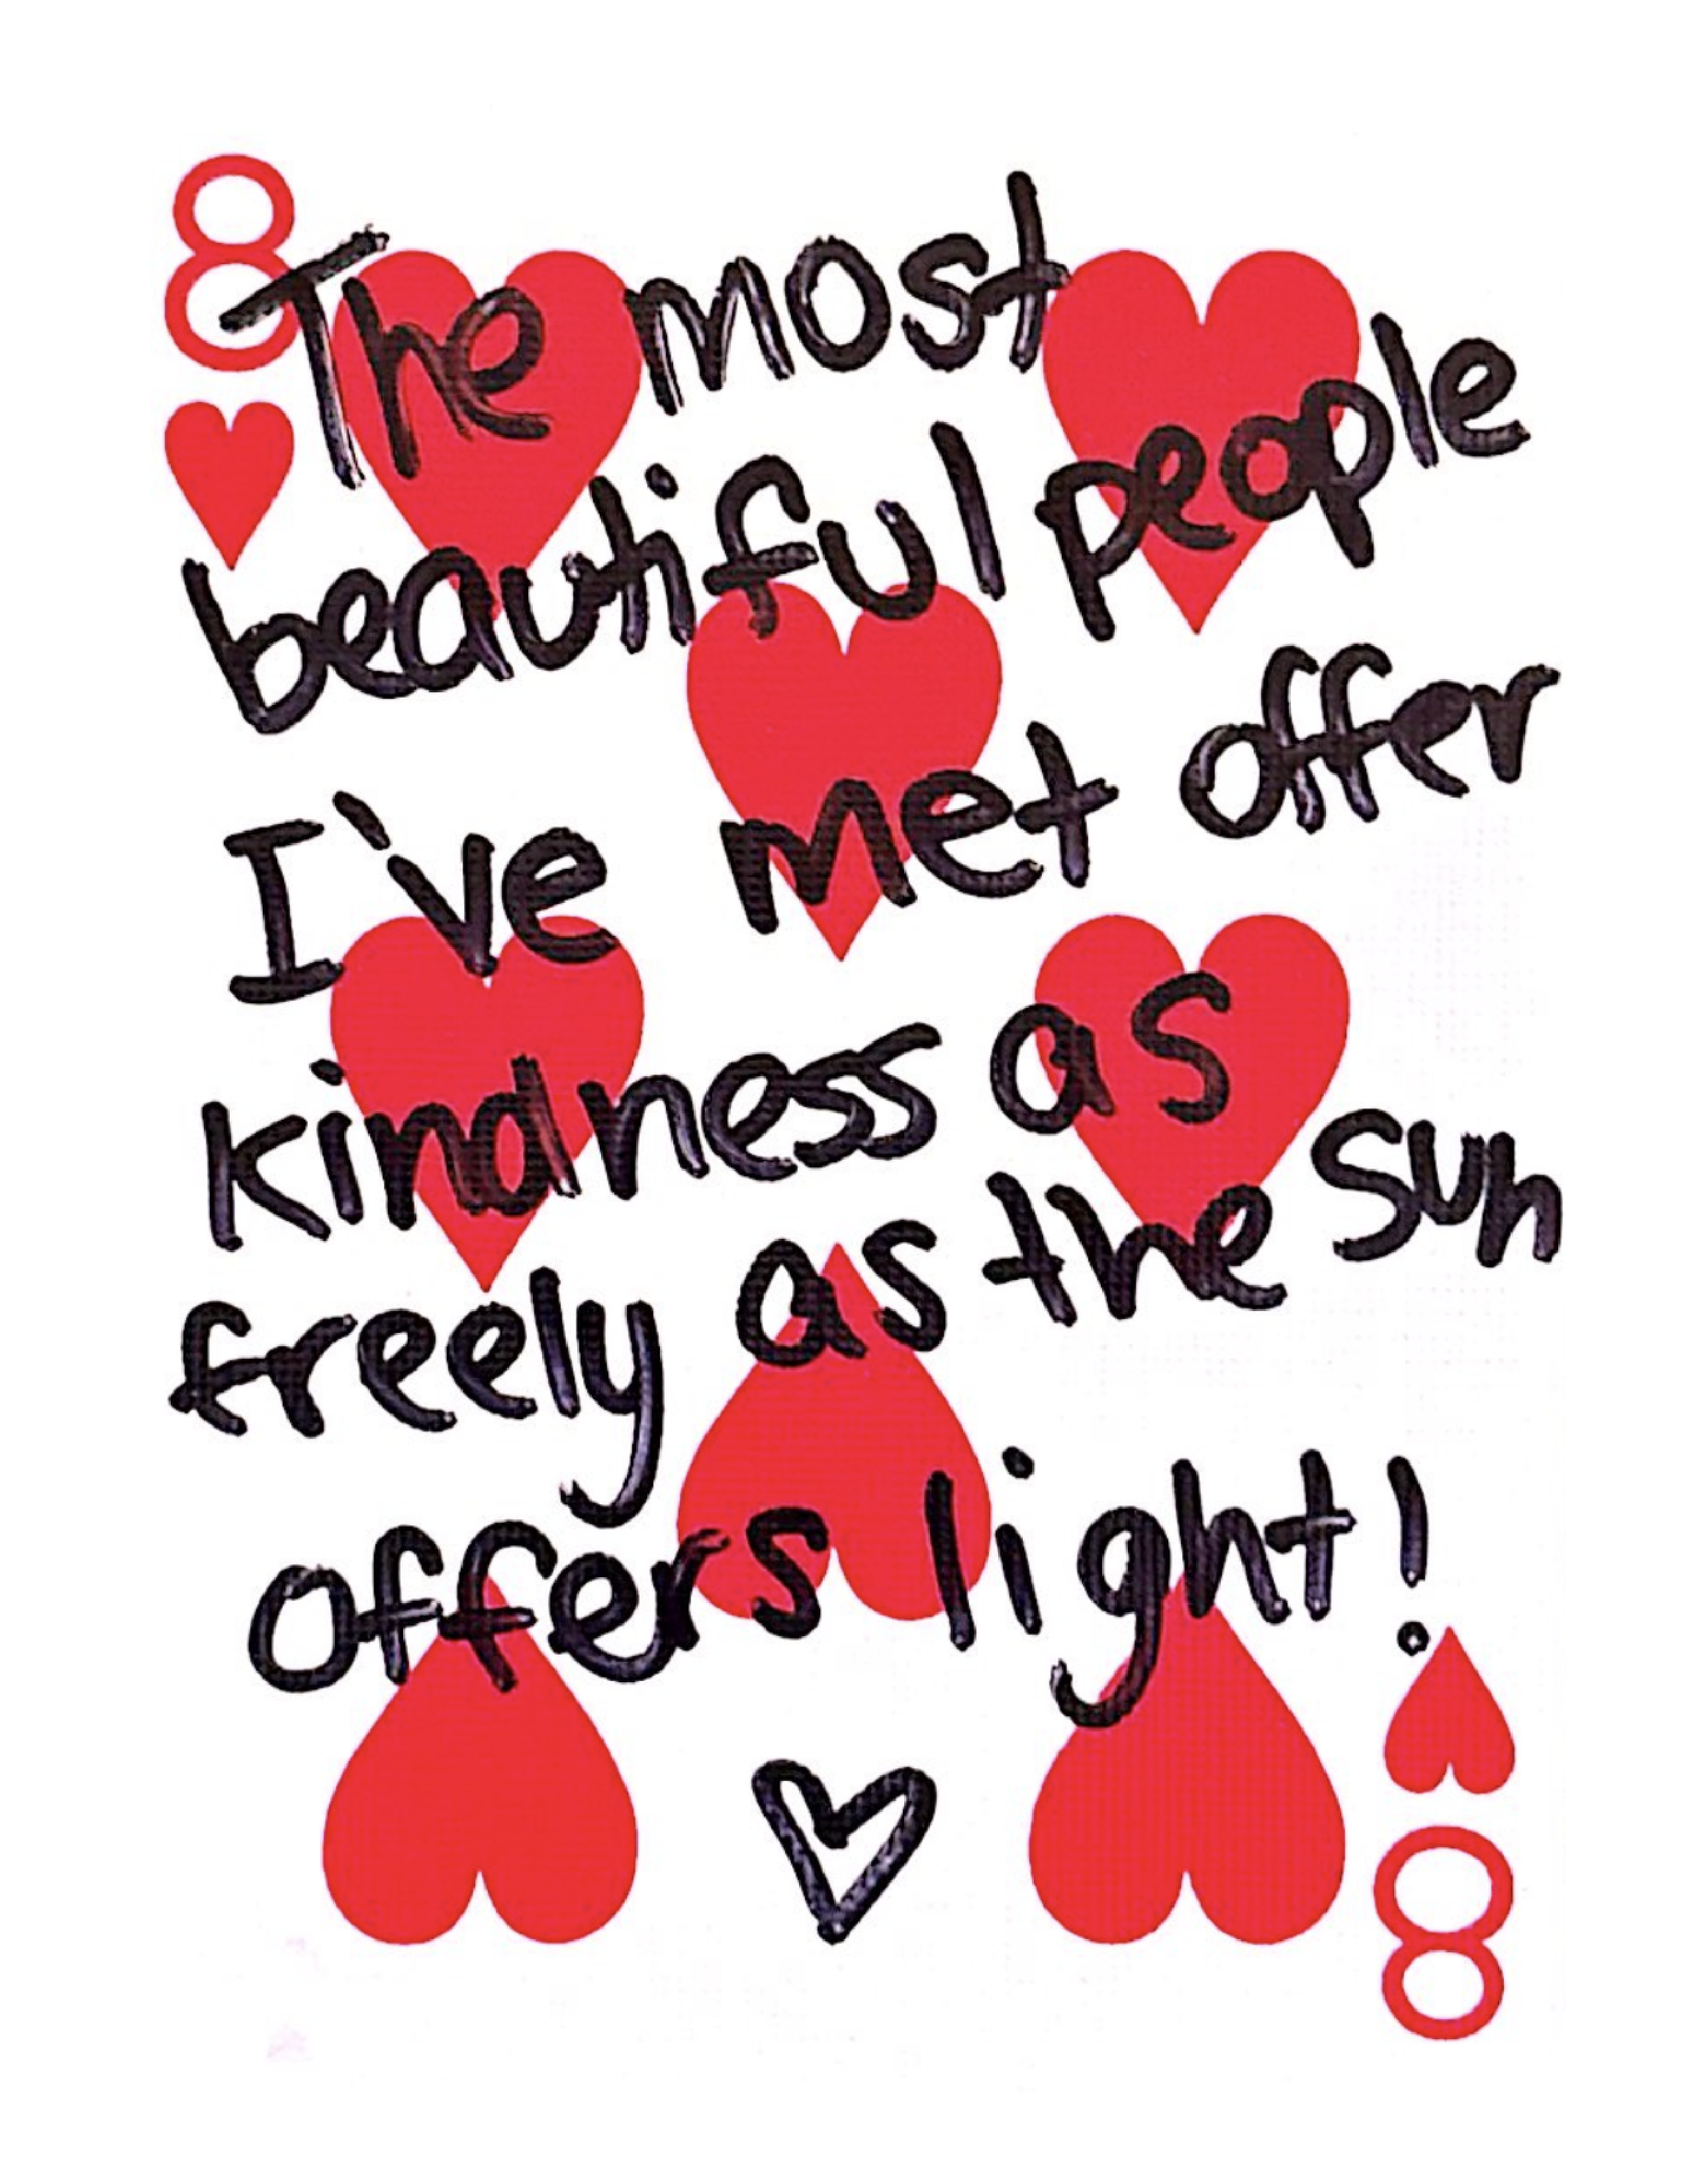 8
The most
beautiful people
I've met offer
kindness as
freely as the sun
offers light!
8